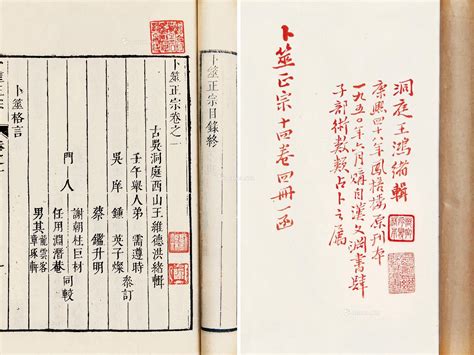 洞庭王鴻緒輯
康熙四十八年鳳梧樓原刊本
一九五〇年六月購自漢文淵書肆
子部術數類占卜之屬
卜筮正宗十四卷四冊一函
卜筮正宗目錄終
卜筮正宗卷之一
古吳洞庭西山王維德洪緒輯
壬午舉人弟 需遵時
吳庠 鍾英子燦 叅訂
蔡鑑升明
門人 謝朝柱巨材
任用淵潛菴 同較
男其龍雲客
章琢輯
卜筮格言